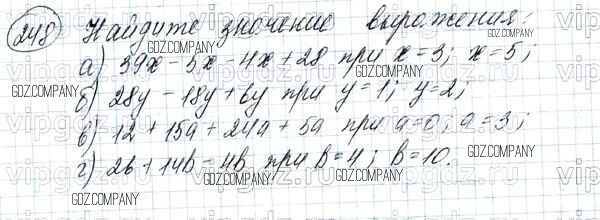 248 Найдите значение выражения:
а) 39x - 5x - 4x + 28 при x = 3; x = 5;
б) 28y - 18y + 6y при y = 1; y = 2;
в) 12 + 15a + 24a + 5a при a = 0; a = 3;
г) 2b + 14b - 4b при b = 4; b = 10.
GDZ.COMPANY
vipgdz.ru